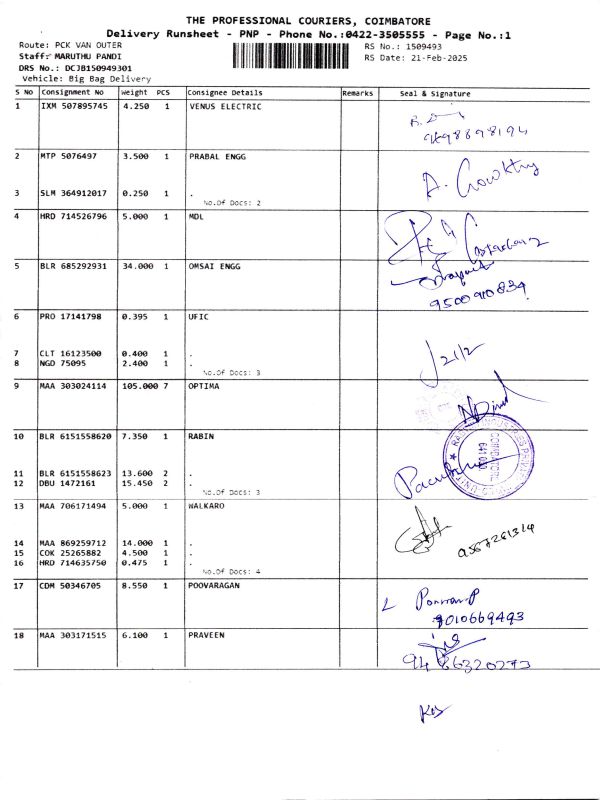 THE PROFESSIONAL COURIERS, COIMBATORE
Delivery Runsheet - PNP - Phone No.:0422-3505555 - Page No.:1
Route: PCK VAN OUTER RS No.: 1509493
Staff: MARUTHU PANDI RS Date: 21-Feb-2025
DRS No.: DCJB150949301
Vehicle: Big Bag Delivery
S No Consignment No Weight PCS Consignee Details Remarks Seal & Signature
1 IXM 507895745 4.250 1 VENUS ELECTRIC
2 MTP 5076497 3.500 1 PRABAL ENGG
A. Crowkthy
3 SLM 364912017 0.250 1 .
No.Of Docs: 2
4 HRD 714526796 5.000 1 MDL
5 BLR 685292931 34.000 1 OMSAI ENGG
9500910839
6 PRO 17141798 0.395 1 UFIC
7 CLT 16123500 0.400 1 .
21/2
8 NGD 75095 2.400 1 .
No.Of Docs: 3
9 MAA 303024114 105.000 7 OPTIMA
10 BLR 6151558620 7.350 1 RABIN
COIMBATORE
11 BLR 6151558623 13.600 2 .
12 DBU 1472161 15.450 2 .
No.Of Docs: 3
13 MAA 706171494 5.000 1 WALKARO
14 MAA 869259712 14.000 1 .
15 COK 25265882 4.500 1 .
16 HRD 714635750 0.475 1 .
No.Of Docs: 4
17 CDM 50346705 8.550 1 POOVARAGAN
9010669493
18 MAA 303171515 6.100 1 PRAVEEN
9486320273